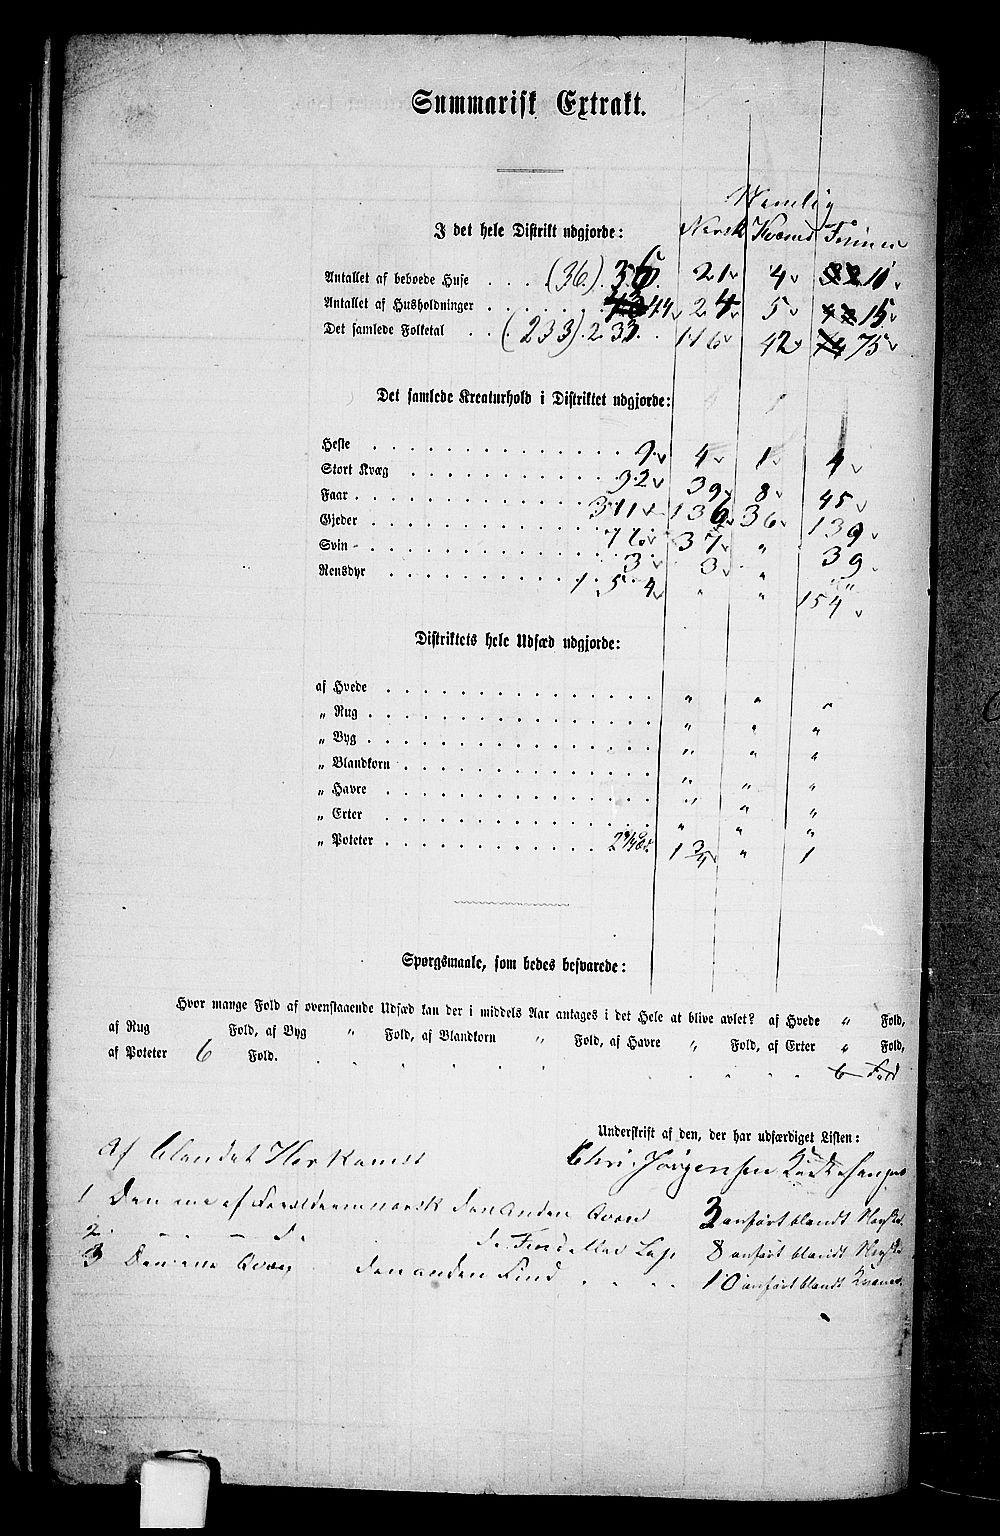 Summarisk Extrakt.
Nemlig
I det hele Distrikt udgjorde: Norsk Kvæner Finner
Antallet af beboede Huse . . . (36.) 36. 21 4 11
Antallet af Husholdninger . . . 44 24 5 15
Det samlede Folketal . . (233) 233. 116 42 75
Det samlede Kreaturhold i Distriktet udgjorde:
Heste . . . 9 4 1 4
Stort Kvæg . . . 92 39 8 45
Faar . . . 311 136 36 139
Gjeder . . . 76 37 " 39
Svin . . . 3 3 " "
Rensdyr . . . 154 " " 154
Distriktets hele Udsæd udgjorde:
af Hvede . . . " " "
„ Rug . . . " " "
„ Byg . . . " " "
„ Blandkorn . . . " " "
„ Havre . . . " " "
„ Erter . . . " " "
„ Poteter . . . 2 3/4 1 3/4 " 1
Spørgsmaale, som bedes besvarede:
Hvor mange Fold af ovenstaaende Udsæd kan der i middels Aar antages i det Hele at blive avlet? af Hvede " Fold,
af Rug Fold, af Byg " Fold, af Blandkorn " Fold, af Havre " Fold, af Erter " Fold,
af Poteter 6 Fold. 6 Fold
Underskrift af den, der har udfærdiget Listen:
Af blandet Herkomst Chr. Jørgensen
1 Den ene af Forældrene norsk den anden Qvæn 3 anført blandt Norske.
2. " — do do Fin eller Lap 8 anført blandt Norske
3 Den ene Qvæn den anden Find . . . . 10 anført blandt Kvæner.